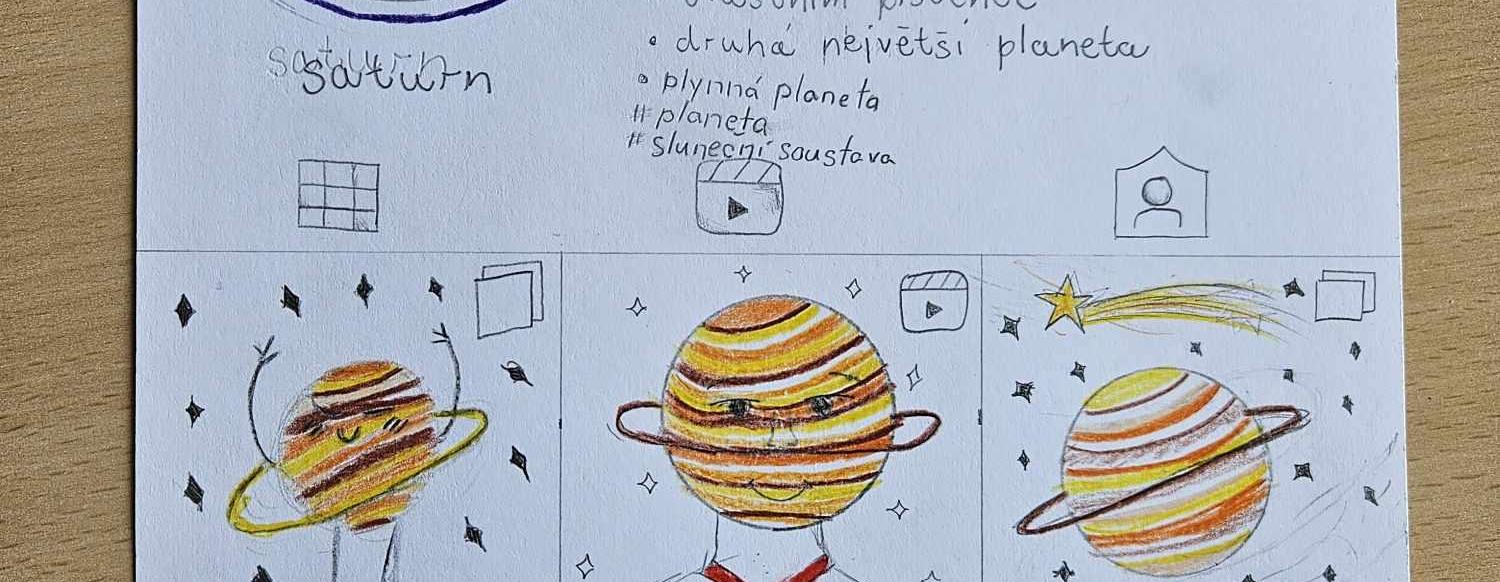 saturn
• druhá největší planeta
• plynná planeta
# planeta
# sluneční soustava